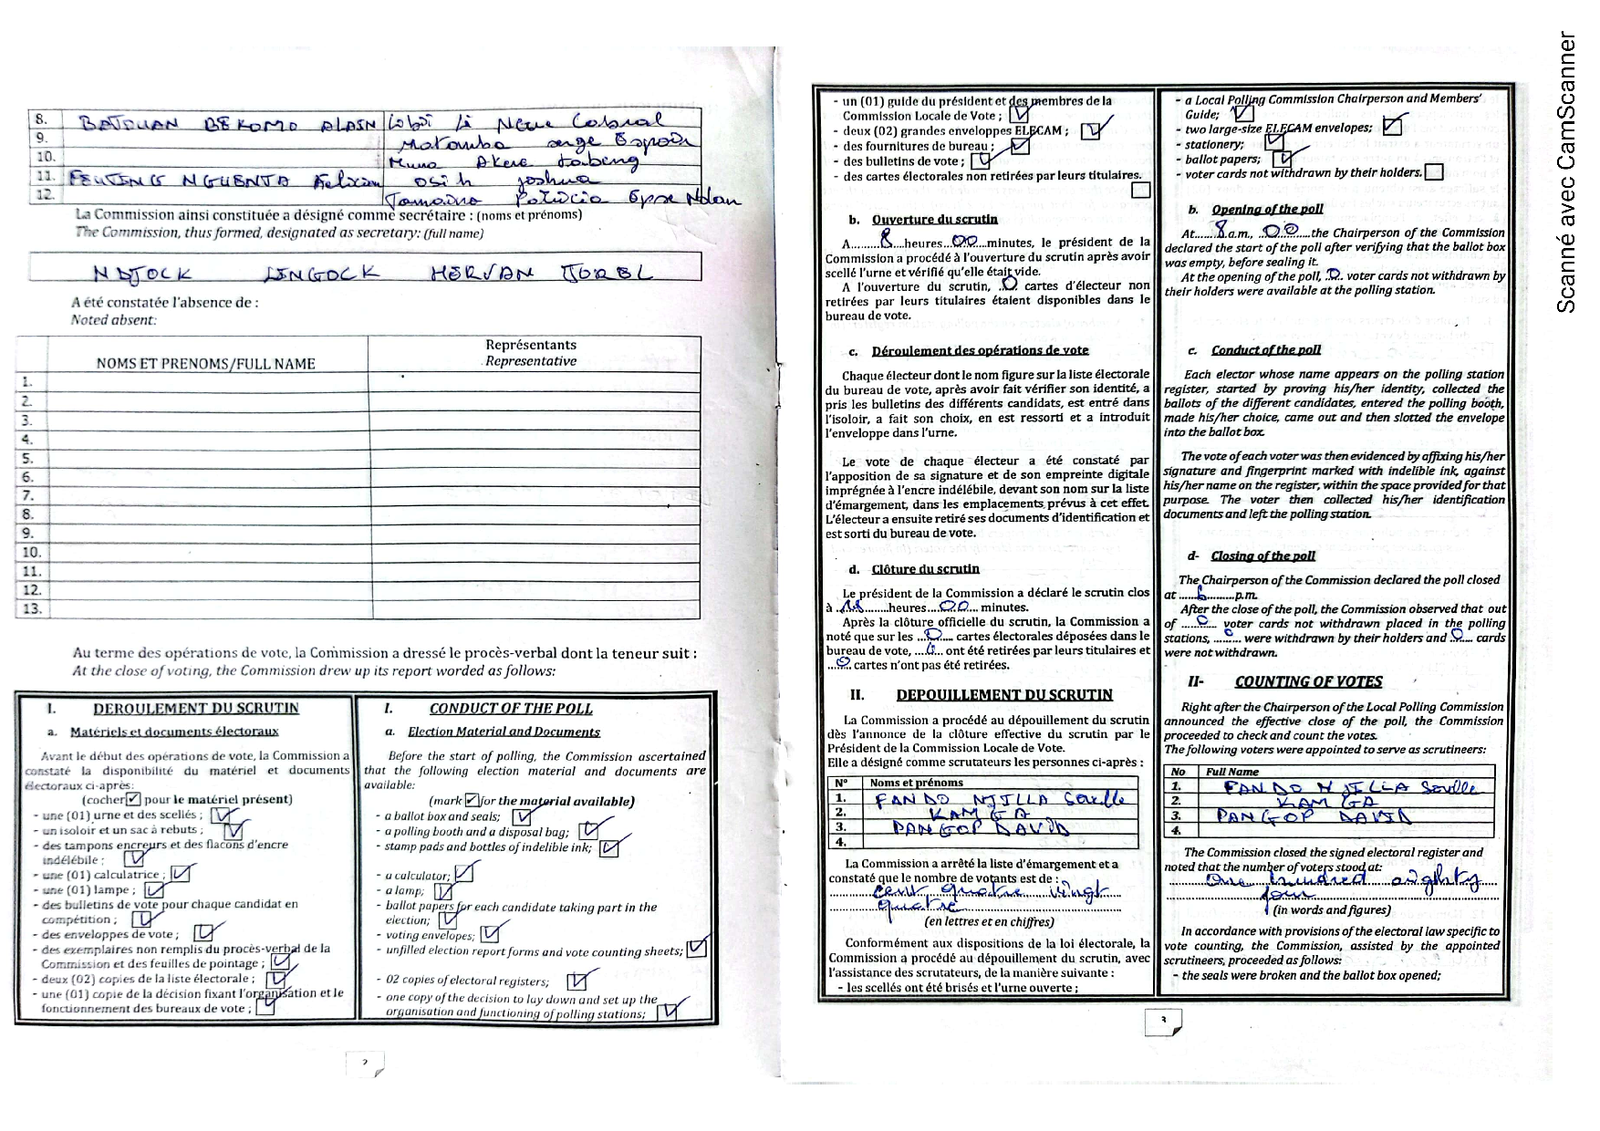 8. BATOUAN BEKOMO ALAIN Libii Li Neue Cabral
9. Matomba Serge Espoir
10. Muna Akere Tabeng
11. FEUTING NGUENTA Felicien Osih Joshua
12. Tomaino Patricia Epse Ndam
La Commission ainsi constituée a désigné comme secrétaire : (noms et prénoms)
The Commission, thus formed, designated as secretary: (full name)
NDJOCK LINGOCK HERVAN JOREL
A été constatée l'absence de :
Noted absent:
NOMS ET PRENOMS/FULL NAME
Représentants
Representative
1.
2.
3.
4.
5.
6.
7.
8.
9.
10.
11.
12.
13.
Au terme des opérations de vote, la Commission a dressé le procès-verbal dont la teneur suit :
At the close of voting, the Commission drew up its report worded as follows:
I. DEROULEMENT DU SCRUTIN
a. Matériels et documents électoraux
Avant le début des opérations de vote, la Commission a
constaté la disponibilité du matériel et documents
électoraux ci-après:
(cocher ✓ pour le matériel présent)
- une (01) urne et des scellés ;
- un isoloir et un sac à rebuts ;
- des tampons encreurs et des flacons d'encre
indélébile ;
- une (01) calculatrice ;
- une (01) lampe ;
- des bulletins de vote pour chaque candidat en
compétition ;
- des enveloppes de vote ;
- des exemplaires non remplis du procès-verbal de la
Commission et des feuilles de pointage ;
- deux (02) copies de la liste électorale ;
- une (01) copie de la décision fixant l'organisation et le
fonctionnement des bureaux de vote ;
I. CONDUCT OF THE POLL
a. Election Material and Documents
Before the start of polling, the Commission ascertained
that the following election material and documents are
available:
(mark ✓ for the material available)
- a ballot box and seals;
- a polling booth and a disposal bag;
- stamp pads and bottles of indelible ink;
- a calculator;
- a lamp;
- ballot papers for each candidate taking part in the
election;
- voting envelopes;
- unfilled election report forms and vote counting sheets;
- 02 copies of electoral registers;
- one copy of the decision to lay down and set up the
organisation and functioning of polling stations;
2
- un (01) guide du président et des membres de la
Commission Locale de Vote ;
- deux (02) grandes enveloppes ELECAM ;
- des fournitures de bureau ;
- des bulletins de vote ;
- des cartes électorales non retirées par leurs titulaires.
b. Ouverture du scrutin
A........8....heures...00....minutes, le président de la
Commission a procédé à l'ouverture du scrutin après avoir
scellé l'urne et vérifié qu'elle était vide.
A l'ouverture du scrutin, ..0 cartes d'électeur non
retirées par leurs titulaires étaient disponibles dans le
bureau de vote.
c. Déroulement des opérations de vote
Chaque électeur dont le nom figure sur la liste électorale
du bureau de vote, après avoir fait vérifier son identité, a
pris les bulletins des différents candidats, est entré dans
l'isoloir, a fait son choix, en est ressorti et a introduit
l'enveloppe dans l'urne.
Le vote de chaque électeur a été constaté par
l'apposition de sa signature et de son empreinte digitale
imprégnée à l'encre indélébile, devant son nom sur la liste
d'émargement, dans les emplacements prévus à cet effet.
L'électeur a ensuite retiré ses documents d'identification et
est sorti du bureau de vote.
d. Clôture du scrutin
Le président de la Commission a déclaré le scrutin clos
à ..18.......heures...00.... minutes.
Après la clôture officielle du scrutin, la Commission a
noté que sur les ...0... cartes électorales déposées dans le
bureau de vote, ...0 ont été retirées par leurs titulaires et
...0 cartes n'ont pas été retirées.
II. DEPOUILLEMENT DU SCRUTIN
La Commission a procédé au dépouillement du scrutin
dès l'annonce de la clôture effective du scrutin par le
Président de la Commission Locale de Vote.
Elle a désigné comme scrutateurs les personnes ci-après :
N° Noms et prénoms
1. FANDO NJILLA
2. KAMGA
3. PANGOP DAVID
4.
La Commission a arrêté la liste d'émargement et a
constaté que le nombre de votants est de :
cent quatre vingt
quatre
(en lettres et en chiffres)
Conformément aux dispositions de la loi électorale, la
Commission a procédé au dépouillement du scrutin, avec
l'assistance des scrutateurs, de la manière suivante :
- les scellés ont été brisés et l'urne ouverte ;
- a Local Polling Commission Chairperson and Members'
Guide;
- two large-size ELECAM envelopes;
- stationery;
- ballot papers;
- voter cards not withdrawn by their holders.
b. Opening of the poll
At......8 a.m., ..00....the Chairperson of the Commission
declared the start of the poll after verifying that the ballot box
was empty, before sealing it.
At the opening of the poll, .0. voter cards not withdrawn by
their holders were available at the polling station.
c. Conduct of the poll
Each elector whose name appears on the polling station
register, started by proving his/her identity, collected the
ballots of the different candidates, entered the polling booth,
made his/her choice, came out and then slotted the envelope
into the ballot box.
The vote of each voter was then evidenced by affixing his/her
signature and fingerprint marked with indelible ink, against
his/her name on the register, within the space provided for that
purpose. The voter then collected his/her identification
documents and left the polling station.
d- Closing of the poll
The Chairperson of the Commission declared the poll closed
at .....6..........p.m.
After the close of the poll, the Commission observed that out
of ....0.... voter cards not withdrawn placed in the polling
stations, ....0.... were withdrawn by their holders and ..0.. cards
were not withdrawn.
II- COUNTING OF VOTES
Right after the Chairperson of the Local Polling Commission
announced the effective close of the poll, the Commission
proceeded to check and count the votes.
The following voters were appointed to serve as scrutineers:
No Full Name
1. FANDO NJILLA
2. KAMGA
3. PANGOP DAVID
4.
The Commission closed the signed electoral register and
noted that the number of voters stood at:
One hundred eighty
four
(in words and figures)
In accordance with provisions of the electoral law specific to
vote counting, the Commission, assisted by the appointed
scrutineers, proceeded as follows:
- the seals were broken and the ballot box opened;
3
Scanné avec CamScanner